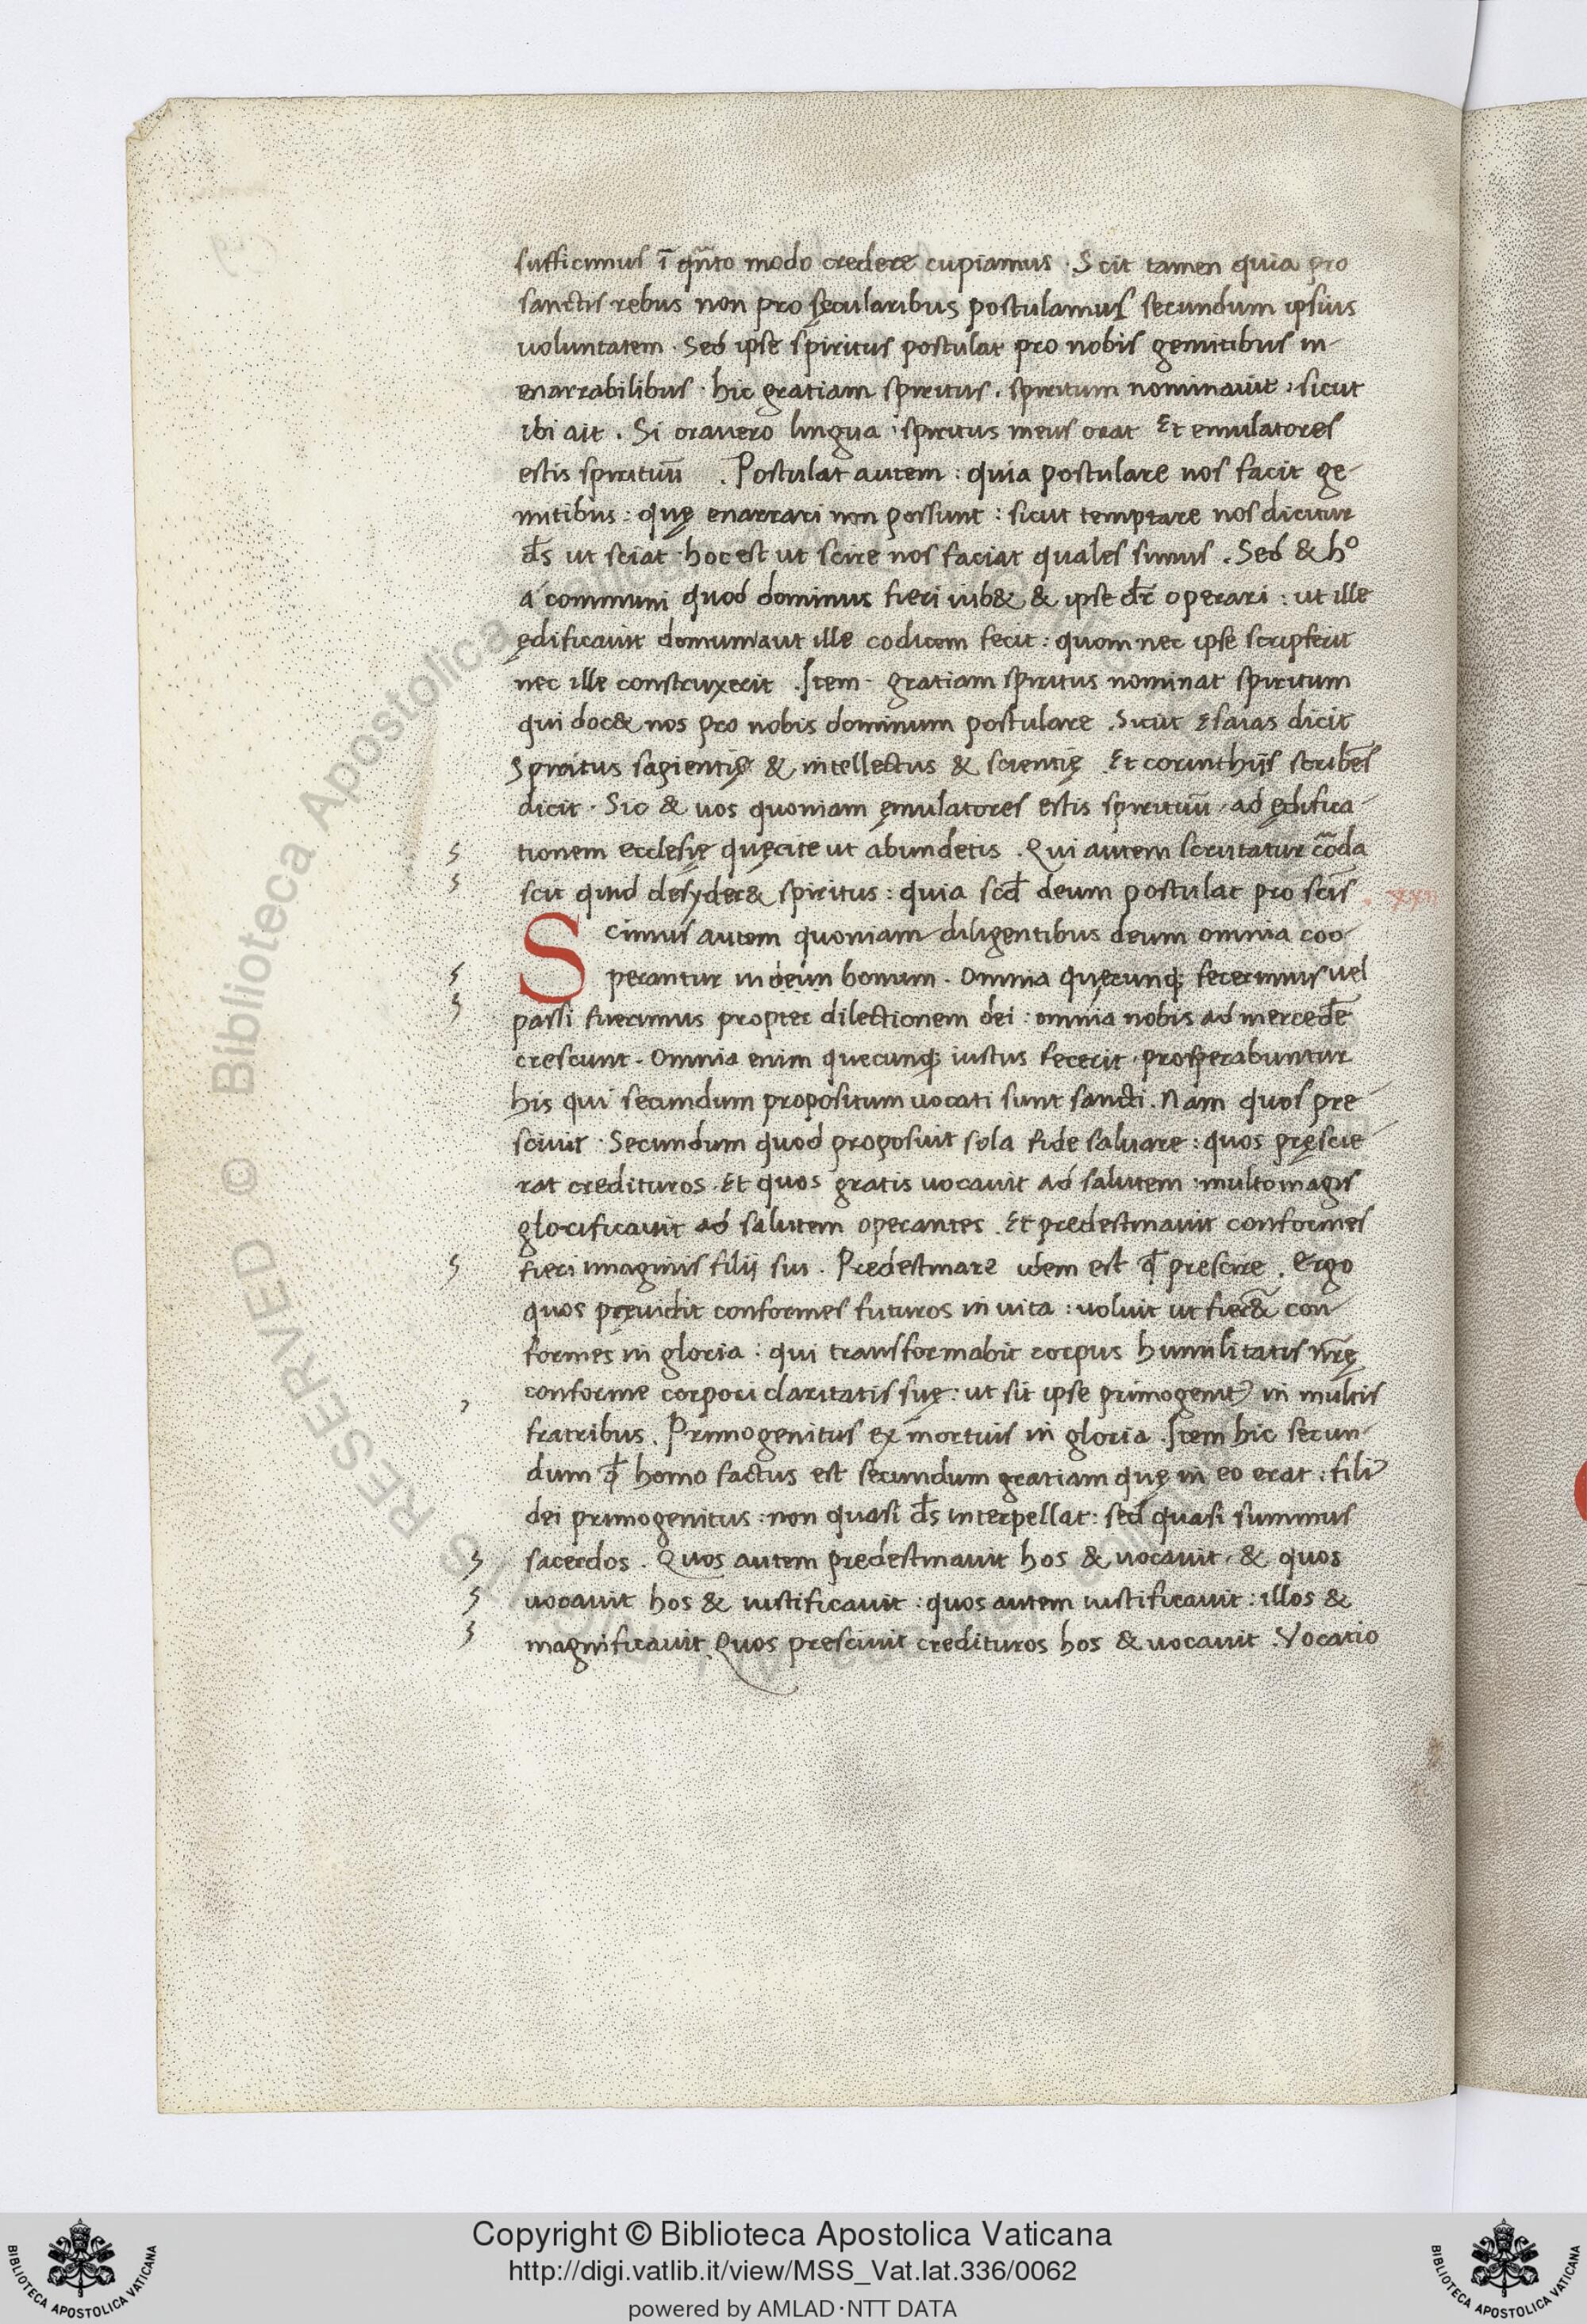 sufficimus ī qñto modo credere cupiamus · Scit tamen quia pro
sanctis rebus non pro sęcularibus postulamus secundum ipsius
uoluntatem · Sed ipse spiritus postulat pro nobis gemitibus in-
enarrabilibus · hic gratiam spiritus . spiritum nominauit : sicut
ibi ait . Si orauero lingua : spiritus meus orat Et emulatores
estis spirituū . Postulat autem : quia postulare nos facit ge-
mitibus : quę enarrari non possunt : sicut temptare nos dicitur
d̄s ut sciat · hoc est ut scire nos faciat quales simus . Sed & hº
á communi quod dominus fieri iub& & ipse dr̄ operari : ut ille
ędificauit domum aut ille codicem fecit : quom nec ipse scripserit
nec ille construxerit . Item · gratiam spiritus nominat spiritum
qui doc& nos pro nobis dominum postulare . Sicut Esaias dicit
Spiritus sapientię & intellectus & scientię . Et corinthijs scribēs
dicit · Sic & uos quoniam ęmulatores estis spirituū · ad ędifica-
tionem ecclesię quęrite ut abundetis . Qui autem scrutatur corda
scit quid desyder& spiritus : quia scd̄ deum postulat pro scīs .
Scimus autem quoniam diligentibus deum omnia coo-
perantur in deum bonum . Omnia quęcunq; fecerimus uel
passi fuerimus propter dilectionem dei : omnia nobis ad mercedē
crescunt . Omnia enim quecunq; iustus fecerit · prosperabuntur
his qui secundum propositum uocati sunt sancti . Nam quos pre-
sciuit · Secundum quod proposuit sola fide saluare : quos pręscie-
rat credituros . Et quos gratis uocauit ad salutem : multo magis
glorificauit ad salutem operantes . Et predestinauit conformes
fieri imaginis filij sui . Predestinare idem est qđ prescire . Ergo
quos pręuidit conformes futuros in uita : uoluit ut fier& con-
formes in gloria : qui transformabit corpus humilitatis nr̄ę
conforme corpori claritatis suę : ut sit ipse primogenit⁹ in multis
fratribus . Primogenitus ex mortuis in gloria . Item hic secun-
dum qđ homo factus est secundum gratiam quę in eo erat : fili⁹
dei primogenitus : non quasi d̄s interpellat : sed quasi summus
sacerdos . Quos autem predestinauit hos & uocauit · & quos
uocauit hos & iustificauit : quos autem iustificauit : illos &
magnificauit . Quos presciuit credituros hos & uocauit . Vocatio
Copyright © Biblioteca Apostolica Vaticana
http://digi.vatlib.it/view/MSS_Vat.lat.336/0062
powered by AMLAD·NTT DATA
BIBLIOTECA APOSTOLICA VATICANA
BIBLIOTECA APOSTOLICA VATICANA